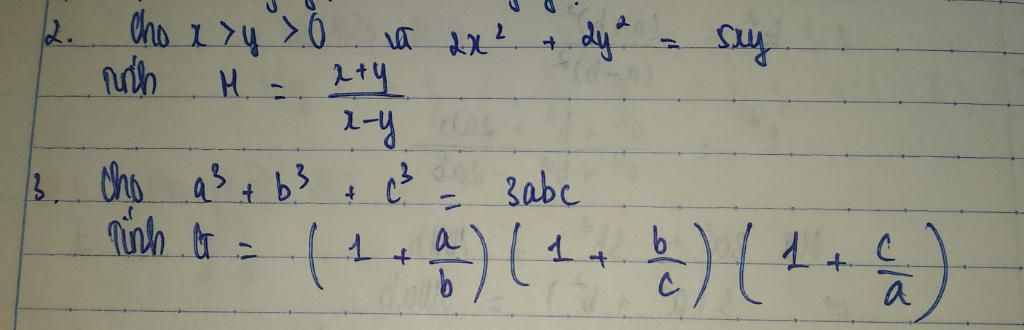 2. Cho x > y > 0 và 2x² + 2y² = 5xy
Tính H = (x+y)/(x-y)
3. Cho a³ + b³ + c³ = 3abc
Tính G = (1 + a/b)(1 + b/c)(1 + c/a)